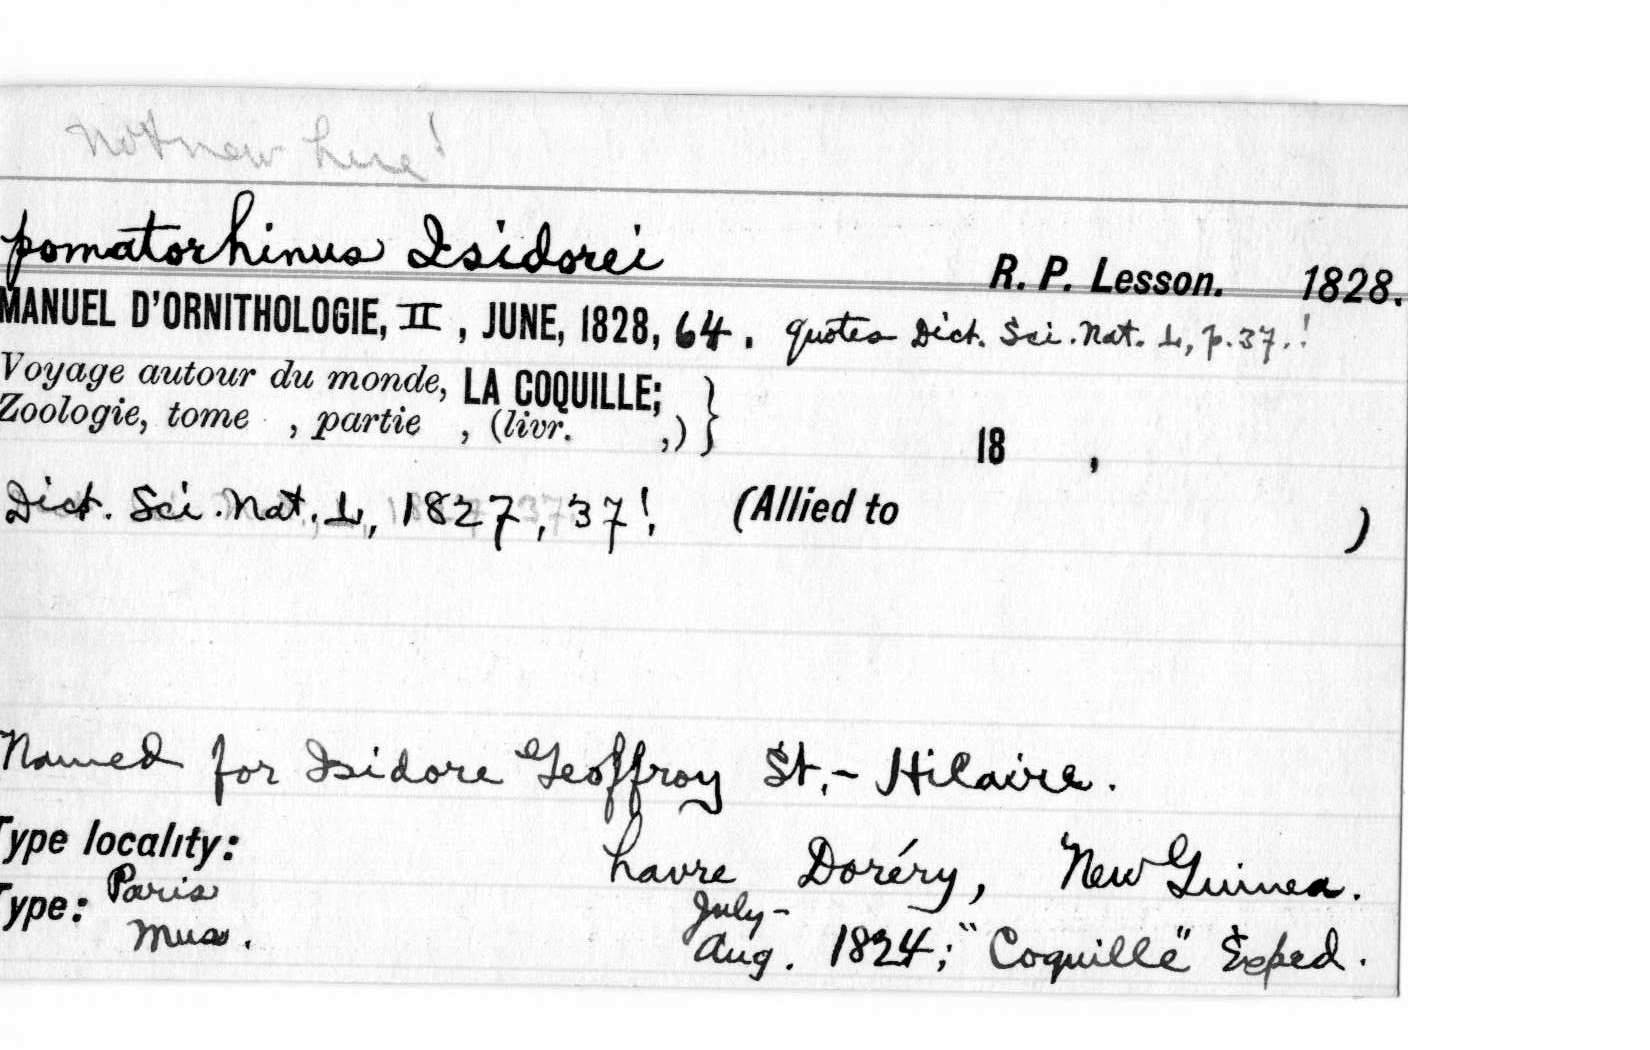 Not new here!
pomatorhinus Isidorei
R. P. Lesson. 1828.
MANUEL D'ORNITHOLOGIE, II, JUNE, 1828, 64. quotes Dict. Sci. Nat. L, p. 37.!
Voyage autour du monde, LA COQUILLE;
Zoologie, tome , partie , (livr. ,)} 18 ,
Dict. Sci. Nat. L, 1827, 37!, (Allied to )
Named for Isidore Geoffroy St.-Hilaire.
Type locality: havre Doréry, New Guinea.
Type: Paris Mus. July-Aug. 1824; "Coquille" Exped.